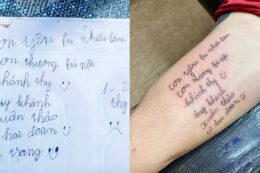 con yêu ba nhiều lắm
con thương bà nội
khánh thy
duy khánh
xuân thảo
cô hai đoan
trang
1 - 2
thy
con yêu ba nhiều lắm
con thương bà nội
khánh thy
duy khánh
xuân thảo
cô hai đoan